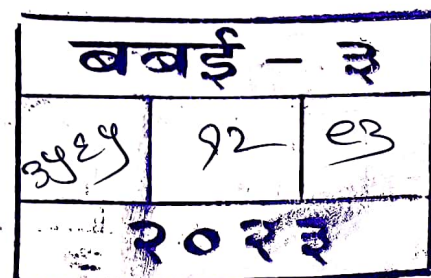 बबई - ३
३५६५ १२ ९३
२०२३